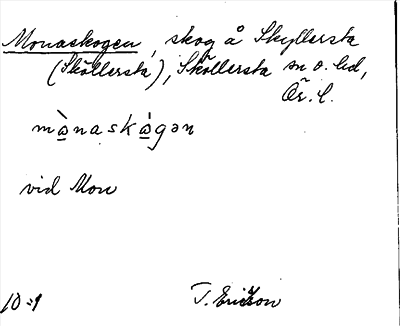 Monaskogen, skog å Skyllersta
(Sköllersta), Sköllersta sn o. hd,
Ör. l.
mὼnaskώgən
vid Mon
10:1 T. Ericsson